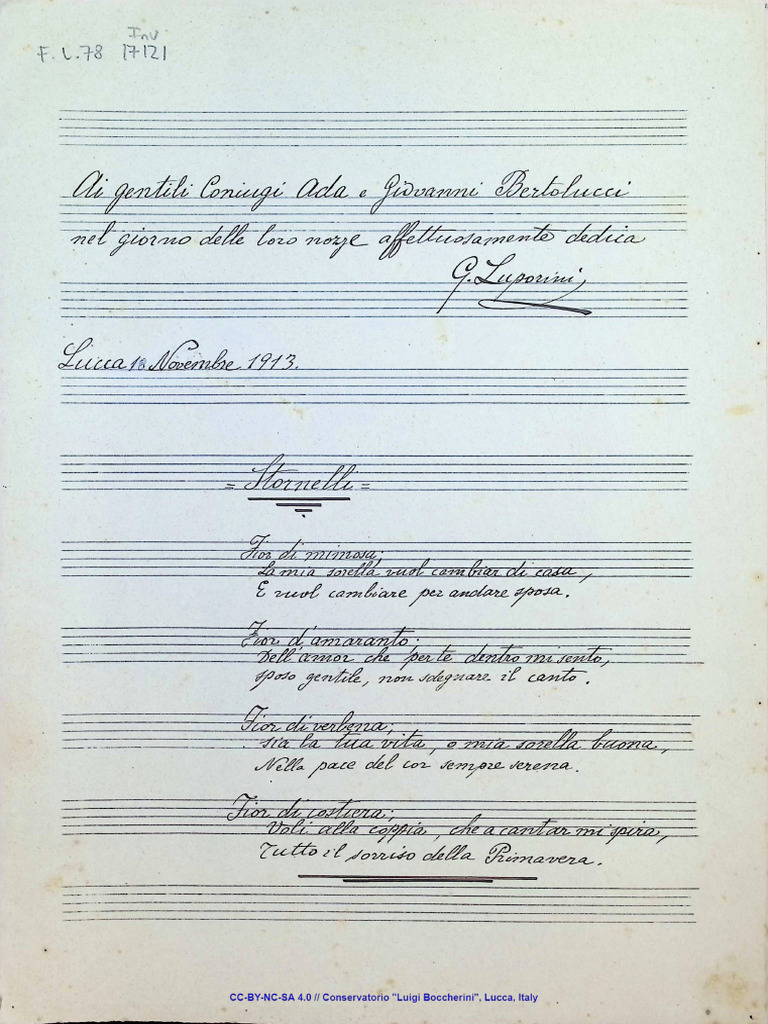 Inv
F. L. 78 17121
Ai gentili Coniugi Ada e Giovanni Bertolucci
nel giorno delle loro nozze affettuosamente dedica
G. Luporini
Lucca 18 Novembre 1913.
= Stornelli =
Fior di mimosa;
La mia sorella vuol cambiar di casa,
E vuol cambiare per andare sposa.
Fior d'amaranto;
Dell'amor che per te dentro mi sento,
sposo gentile, non sdegnare il canto.
Fior di verbena;
sia la tua vita, o mia sorella buona,
Nella pace del cor sempre serena.
Fior di costiera;
Voli alla coppia, che a cantar mi spira,
Tutto il sorriso della Primavera.
CC-BY-NC-SA 4.0 // Conservatorio "Luigi Boccherini", Lucca, Italy